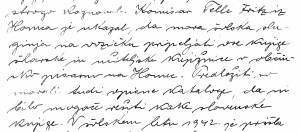 strogo kaznoval. Komisar Pelle Fritz iz
Homca je ukazal, da mora šolska slu-
žinja na vozičku pripeljati vse knjige
šolarske in učiteljske knjižnice v občin-
sko pisarno na Homec. Predložiti
morali tudi spisne kataloge, da ni
bilo mogoče rešiti kake slovenske
knjige. V šolskem letu 1942. je prišla